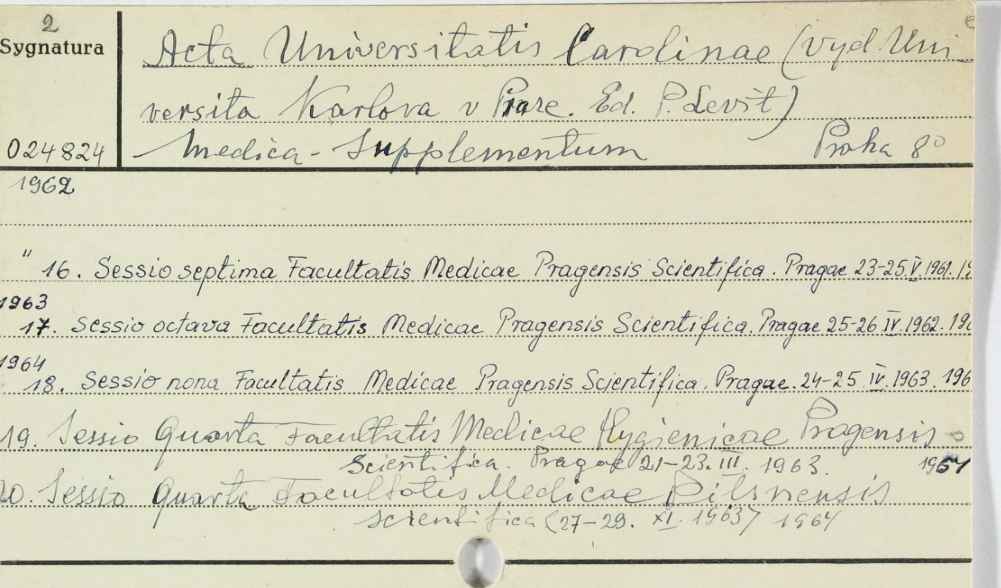 2
Sygnatura
024824
Acta Universitatis Carolinae (Vyd. Uni-
versita Karlova v Praze. Ed. P. Levit)
Medica - Supplementum Praha 8°
1962
" 16. Sessio septima Facultatis Medicae Pragensis Scientifica. Pragae 23-25.V.1961. 19
1963
17. Sessio octava Facultatis Medicae Pragensis Scientifica. Pragae 25-26 IV.1962. 196
1964
18. Sessio nona Facultatis Medicae Pragensis Scientifica. Pragae. 24-25 IV.1963. 196
19. Sessio Quarta Facultatis Medicae Hygienicae Pragensis
Scientifica. Pragae 21-23.III. 1963. 1964
20. Sessio Quarta Facultatis Medicae Pilsnensis
scientifica (27-29. XI. 1963) 1964